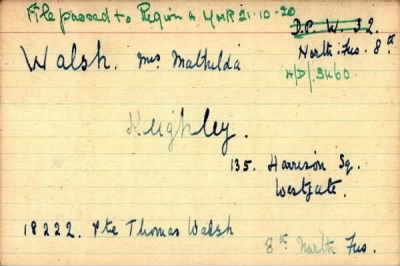 File passed to Region 4, York 21.10.20
D.P. W. 32.
North: Fus. 8th
Walsh. Mrs Mathilda
A/D/.3460.
Keighley.
135. Harrison Sq.
Westgate.
18222. Pte Thomas Walsh
8th North Fus.